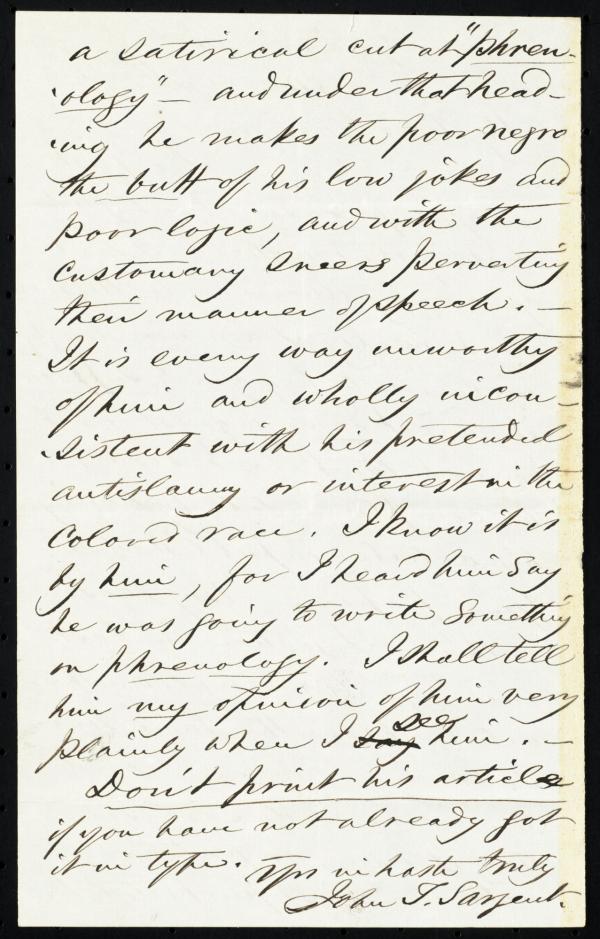 a satirical cut at "phren-
ology" – and under that head-
ing he makes the poor negro
the butt of his low jokes and
poor logic, and with the
customary sneers perverting
their manner of speech. –
It is every way unworthy
of him and wholly incon-
sistent with his pretended
antislavery or interest in the
colored race. I know it is
by him, for I heard him say
he was going to write something
on phrenology. I shall tell
him my opinion of him very
plainly when I say see him. –
Don't print his article
if you have not already got
it in type. Yrs in haste truly
John T. Sargent.